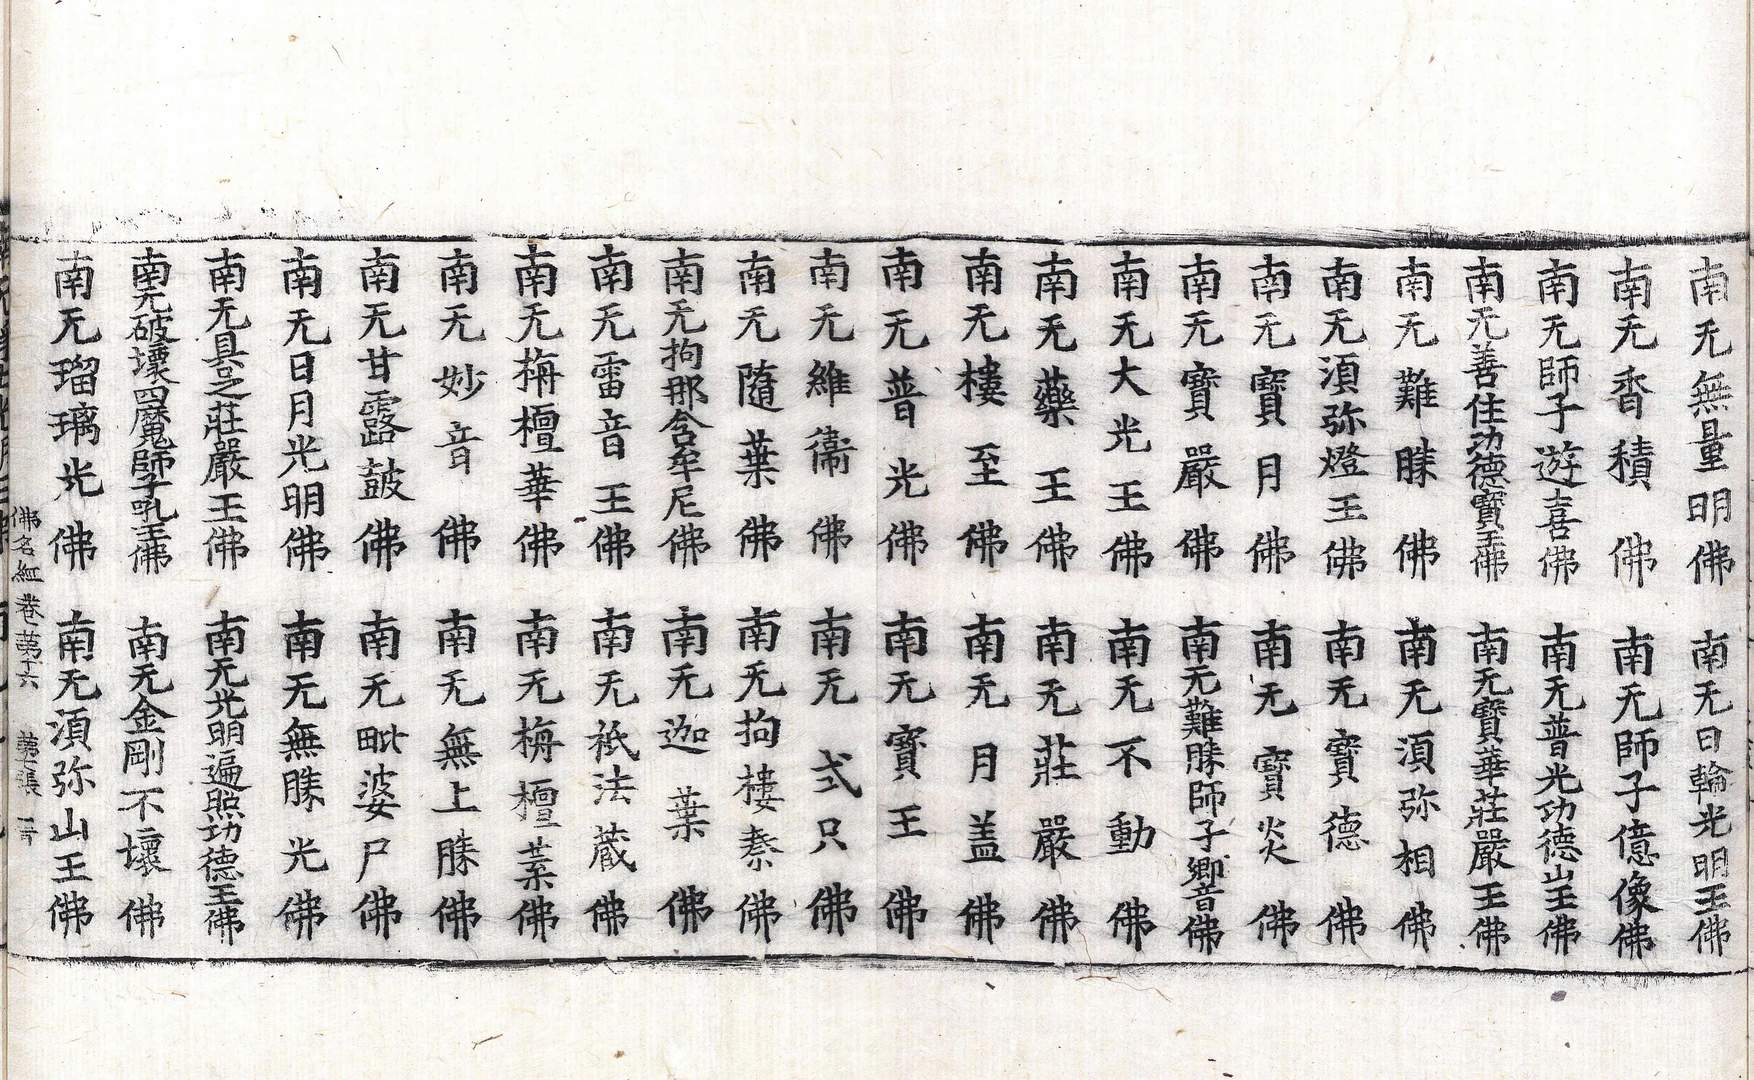 南无無量明佛 南无日輪光明王佛
南无香積佛 南无師子億像佛
南无師子遊喜佛 南无普光功德山王佛
南无善住功德寶王佛 南无寶華莊嚴王佛
南无難勝佛 南无須弥相佛
南无須弥燈王佛 南无寶德佛
南无寶月佛 南无寶炎佛
南无寶嚴佛 南无難勝師子嚮音佛
南无大光王佛 南无不動佛
南无藥王佛 南无莊嚴佛
南无樓至佛 南无月盖佛
南无普光佛 南无寶王佛
南无維衛佛 南无式只佛
南无隨葉佛 南无拘樓秦佛
南无拘那含牟尼佛 南无迦葉佛
南无雷音王佛 南无祇法藏佛
南无栴檀華佛 南无栴檀葉佛
南无妙音佛 南无無上勝佛
南无甘露鼓佛 南无毗婆尸佛
南无日月光明佛 南无無勝光佛
南无具足莊嚴王佛 南无光明遍照功德王佛
南无破壞四魔師子吼王佛 南无金剛不壞佛
南无瑠璃光佛 南无須弥山王佛
佛名經卷第十六 第七張